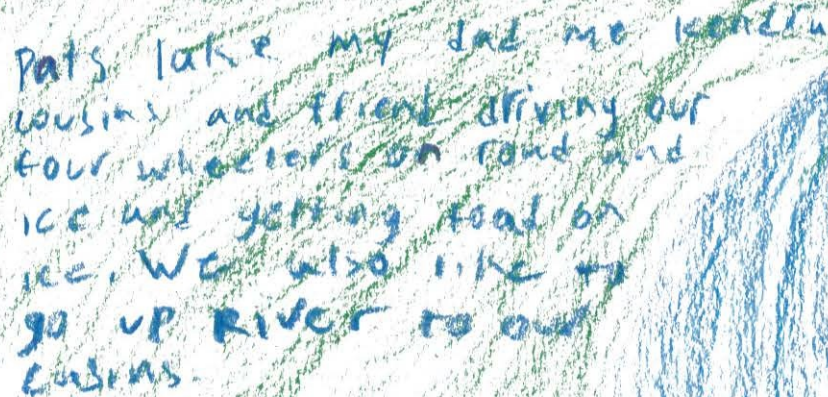 Pats lake my dad me kendru
cousins and friend driving our
four wheelers on road and
ice and getting toad on
ice. We also like to
go up River to our
Cusins.